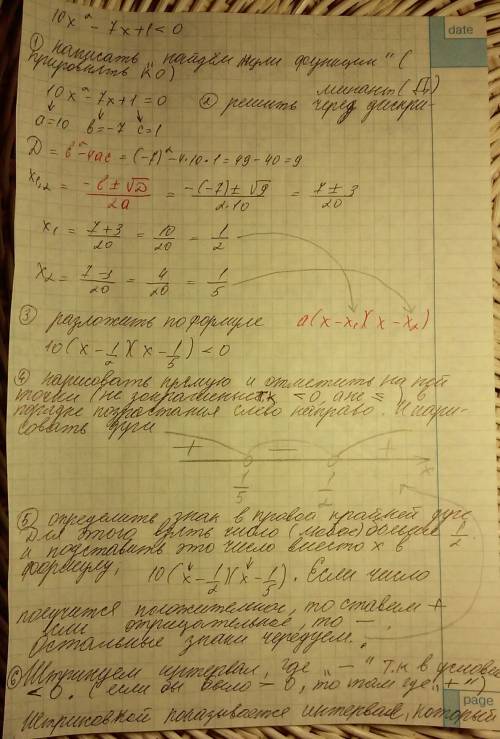 10x² - 7x + 1 < 0
date
① написать "найдём нули функции" (
приравнять к 0)
10x² - 7x + 1 = 0
② решить через дискри-
минант (√D)
a=10 b=-7 c=1
D = b² - 4ac = (-7)² - 4·10·1 = 49 - 40 = 9
x1,2 = (-b ± √D)/2a = (-(-7) ± √9)/2·10 = (7 ± 3)/20
x1 = (7+3)/20 = 10/20 = 1/2
x2 = (7-3)/20 = 4/20 = 1/5
③ разложить по формуле a(x-x1)(x-x2)
10(x - 1/2)(x - 1/5) < 0
④ нарисовать прямую и отметить на ней
точки (не закрашены т.к. < 0, а не ≤ в
порядке возрастания слева направо. И нари-
совать дуги
+ - +
1/5 1/2 x
⑤ определить знак в правой крайней дуге
Для этого взять число (любое) больше 1/2
и подставить это число вместо x в
формулу, 10(x - 1/2)(x - 1/5). Если число
получится положительное, то ставим +
если отрицательное, то —.
Остальные знаки чередуем.
⑥ Штрихуем интервал, где "—" т.к в условии
< 0. (если бы было > 0, то там где "+")
Штриховкой показывается интервал, который
page